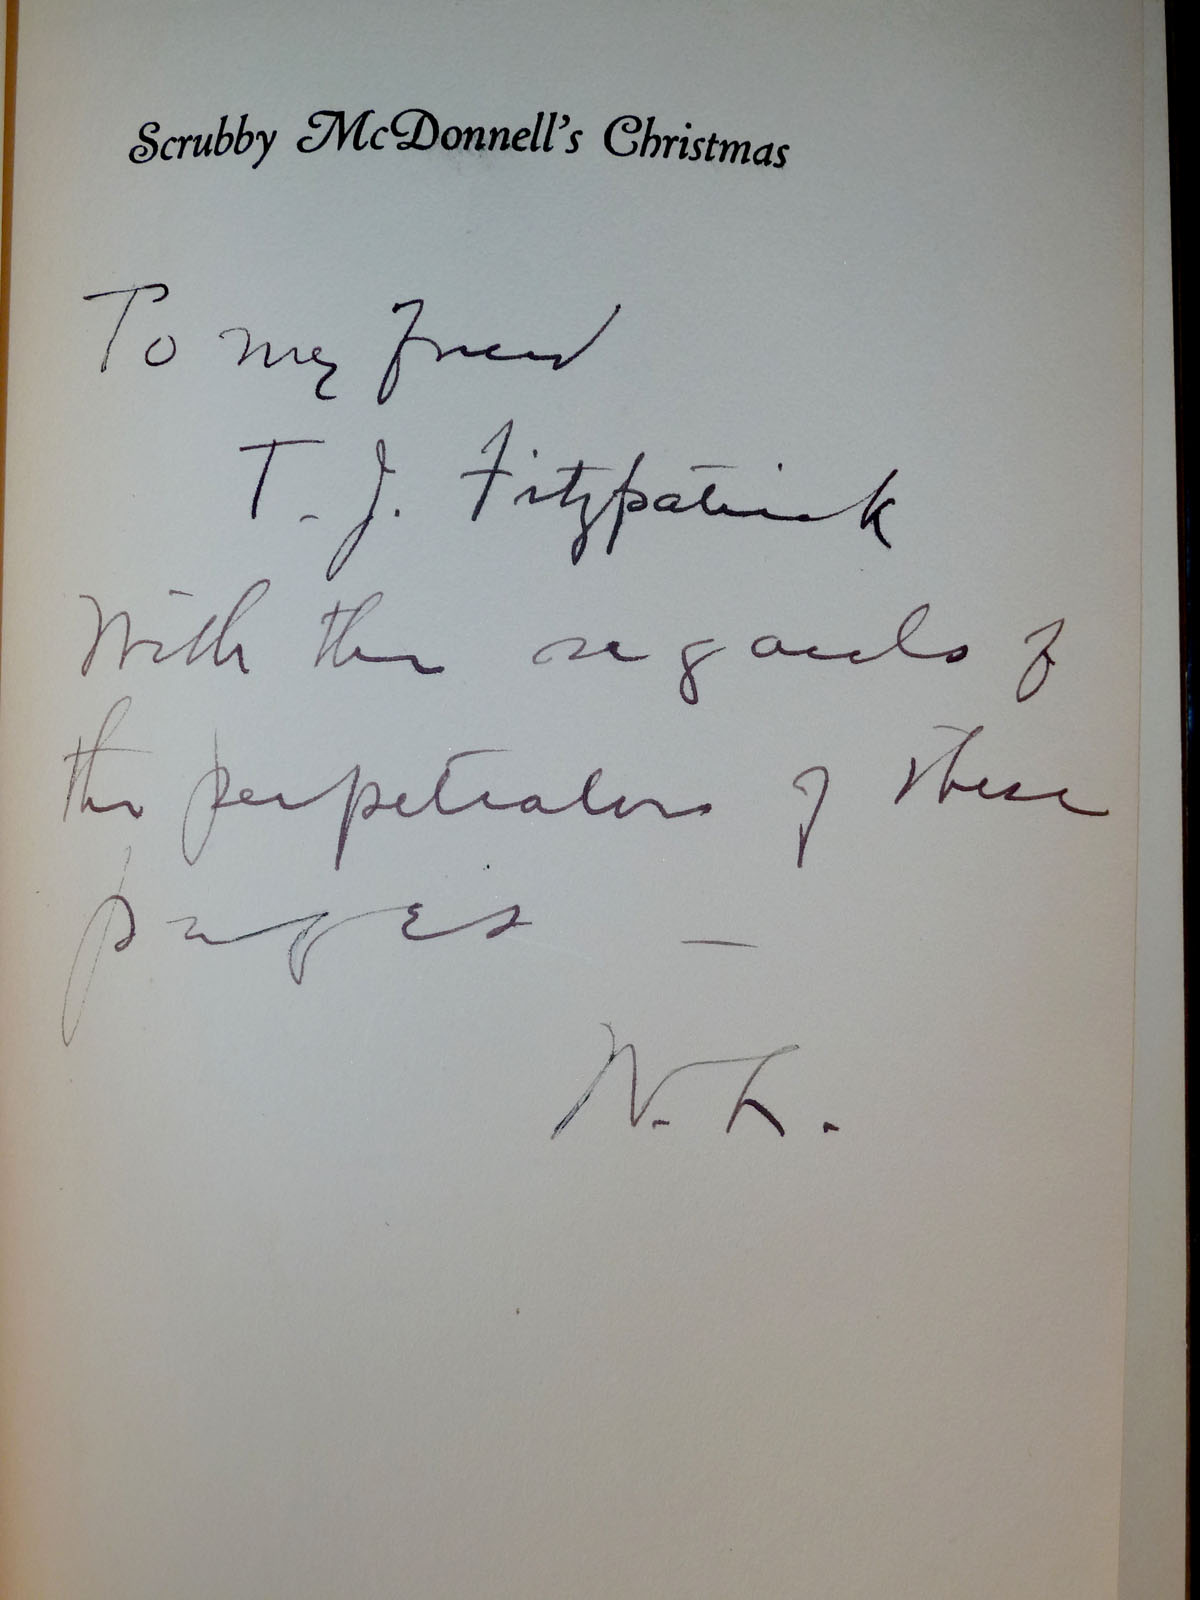 Scrubby McDonnell's Christmas
To my friend
T. J. Fitzpatrick
With the regards of
the perpetrators of these
pages —
W. L.